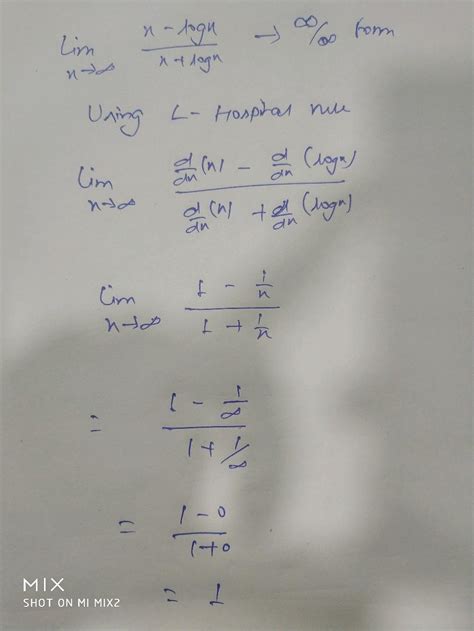 Lim n→∞ (n - logn)/(n + logn) → ∞/∞ form
Using L-Hospital rule
Lim n→∞ (d/dn (n) - d/dn (logn))/(d/dn (n) + d/dn (logn))
Lim n→∞ (1 - 1/n)/(1 + 1/n)
= (1 - 1/∞)/(1 + 1/∞)
= (1 - 0)/(1 + 0)
= 1
MIX
SHOT ON MI MIX2